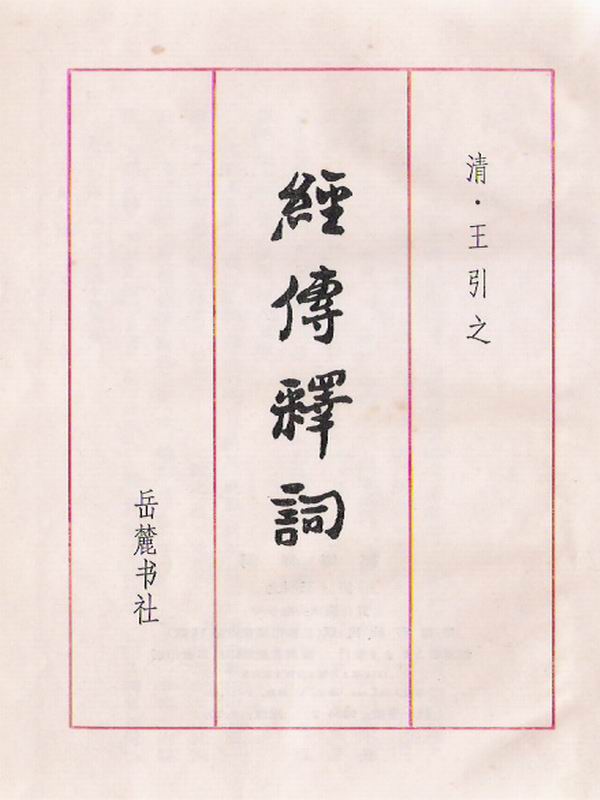 清·王引之
經傳釋詞
岳麓书社